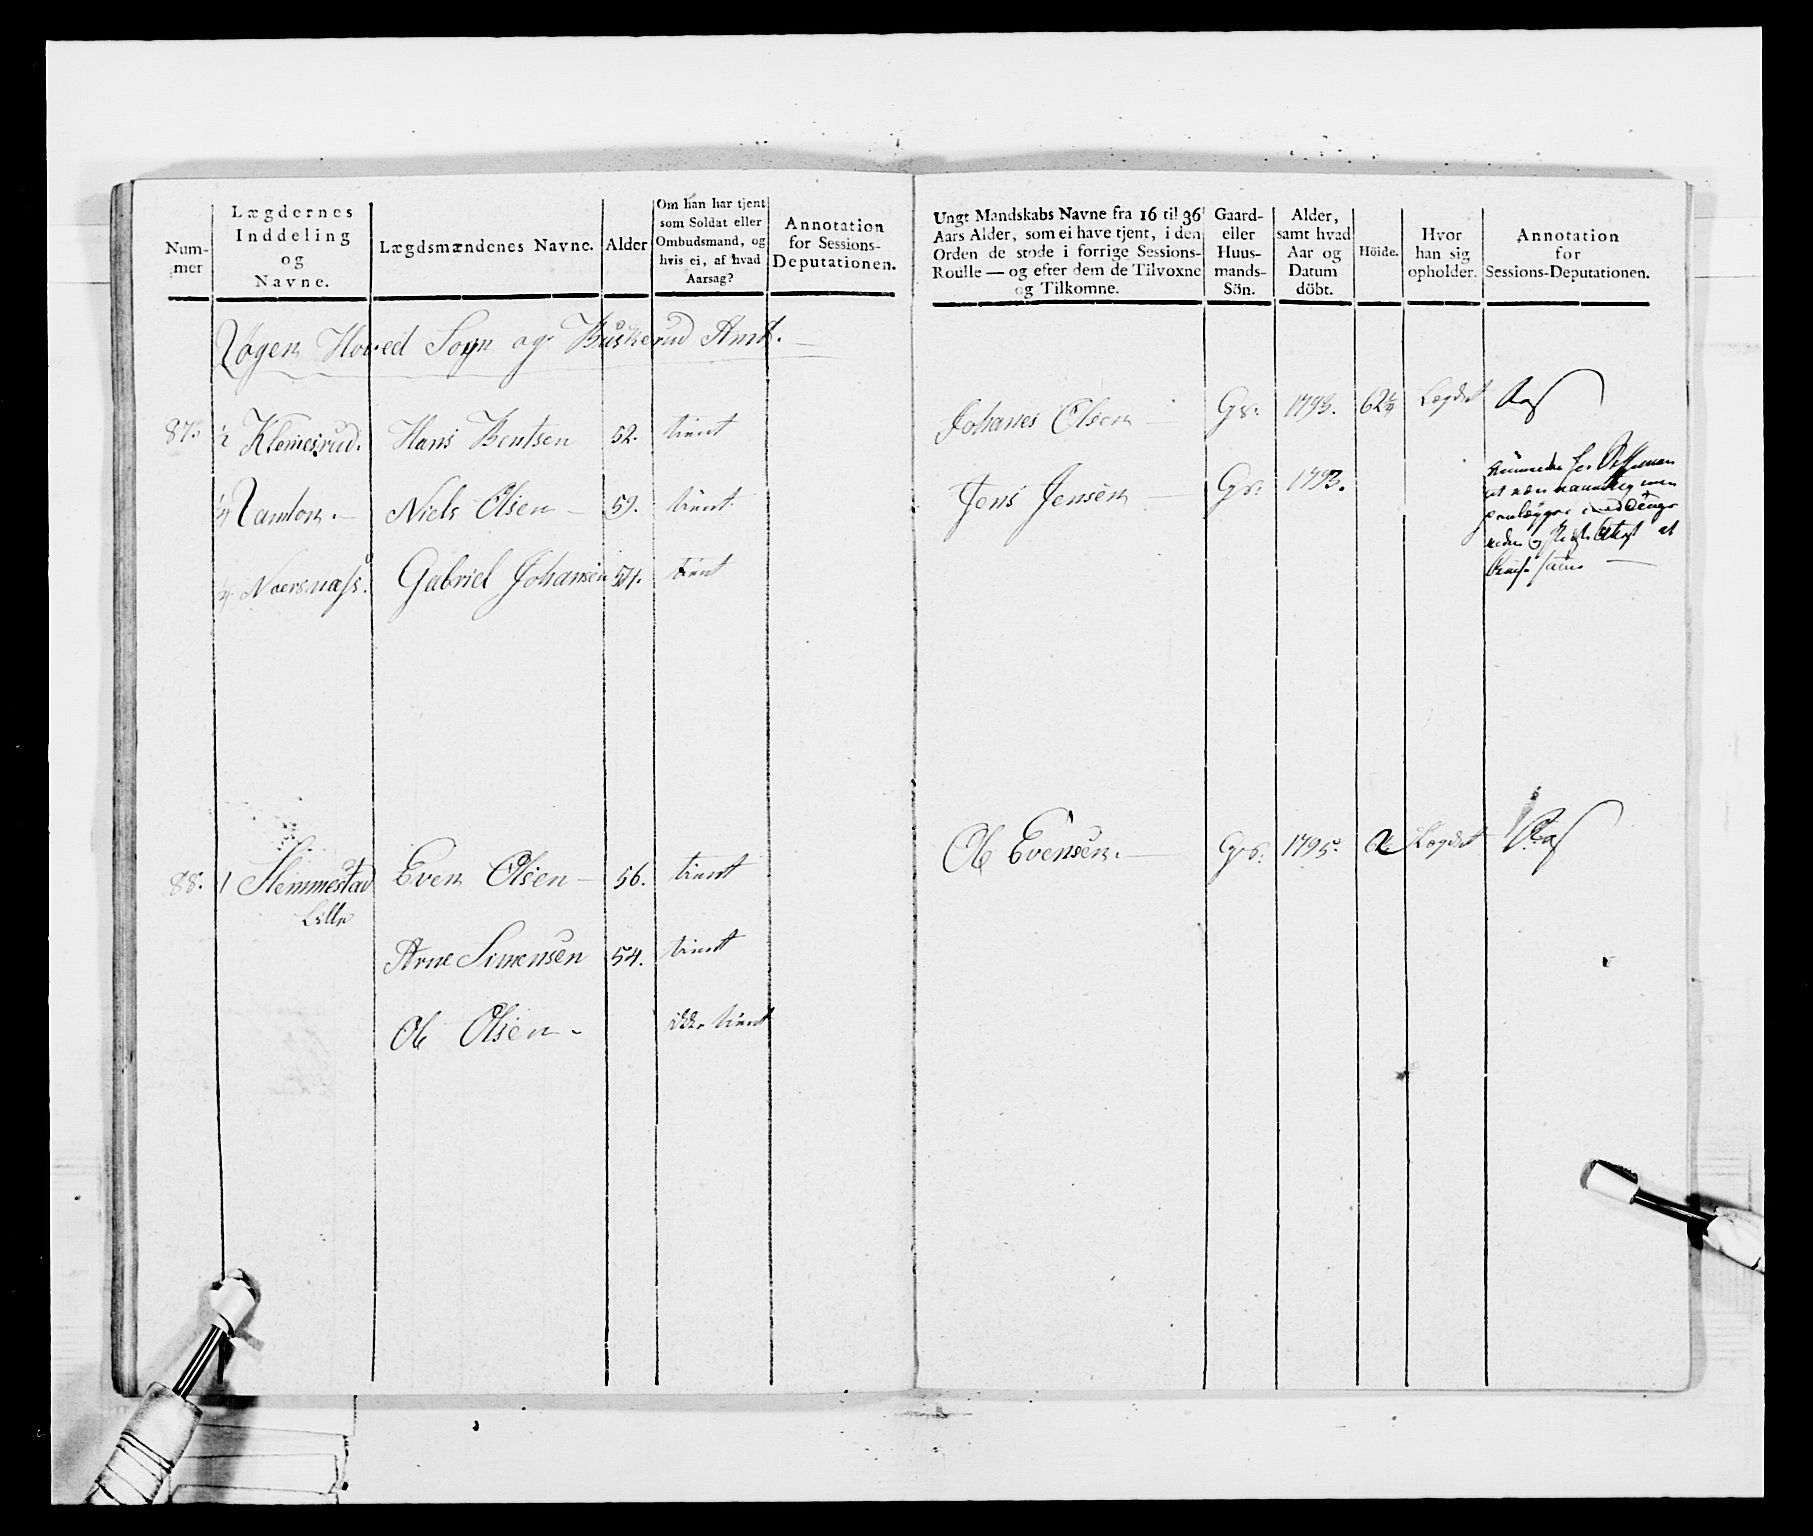 Num-
mer
Lægdernes
Inddeling
og
Navne.
Lægdsmændenes Navne.
Alder
Om han har tjent
som Soldat eller
Ombudsmand, og
hvis ei, af hvad
Aarsag?
Annotation
for Sessions-
Deputationen.
Røgen Hoved Sogn og Buskerud Amt.
87. ½ Klemesrud. Hans Bentsen 52. tient
¼ Ramton. Niels Olsen 59. tient
¼ Naersnæss. Gabriel Johansen 54. tient
88. 1 Slemmestad Even Olsen 56. tient
Lille
Arne Simensen 54. tient
Ole Olsen ikke tient
Ungt Mandskabs Navne fra 16 til 36
Aars Alder, som ei have tjent, i den
Orden de stode i forrige Sessions-
Roulle — og efter dem de Tilvoxne
og Tilkomne.
Gaard-
eller
Huus-
mands-
Sön.
Alder,
samt hvad
Aar og
Datum
döbt.
Höide.
Hvor
han sig
opholder.
Annotation
for
Sessions-Deputationen.
Johanes Olsen Gr. 1793. 62¼ Lægdet
Jens Jensen Gr. 1793.
Ole Evensen. Gr. 1795. Lægdet